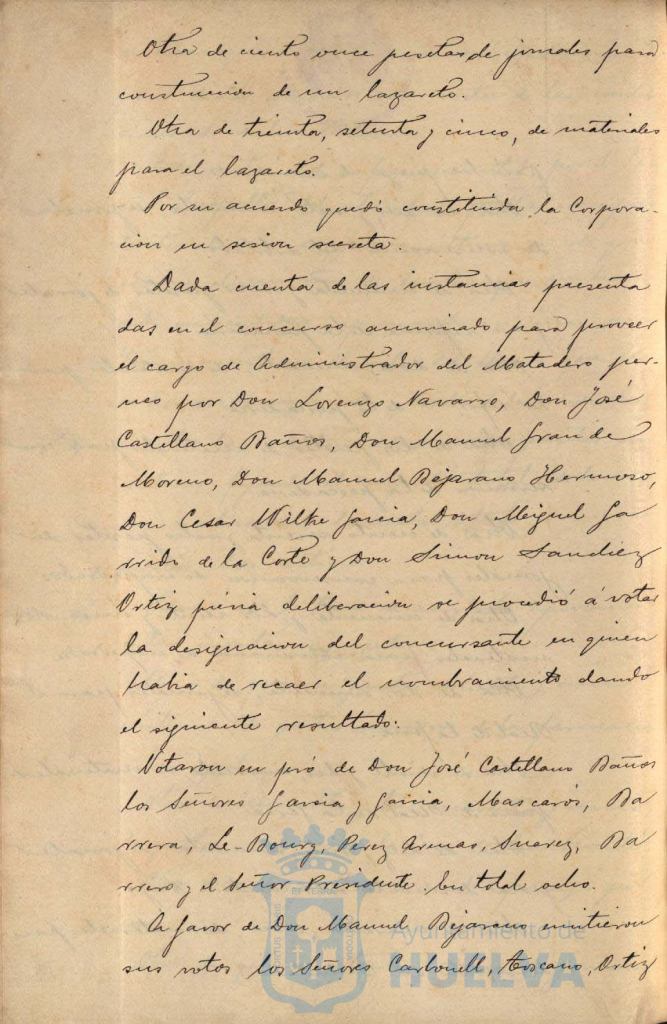 Otra de ciento once pesetas de jornales para
construccion de un lazareto.
Otra de treinta, setenta y cinco, de materiales
para el lazareto.
Por su acuerdo quedó constituida la Corpora-
cion en sesion secreta.
Dada cuenta de las instancias presenta
das en el concurso anunciado para proveer
el cargo de Administrador del Matadero per-
neo por Don Lorenzo Navarro, Don José
Castellano Baños, Don Manuel Grande
Moreno, Don Manuel Bejarano Hermoso,
Don Cesar Wilke Garcia, Don Miguel Ga
rrido de la Corte y Don Simon Sanchez
Ortiz prévia deliberacion se procedió á votar
la designacion del concursante en quien
habia de recaer el nombramiento dando
el siguiente resultado:
Votaron en pró de Don José Castellano Baños
los Señores Garcia y Garcia, Mascarós, Ba
rrera, Le-Bourg, Perez Arenas, Suarez, Ba
rrero y el Señor Presidente. En total ocho.
A favor de Don Manuel Bejarano emitieron
sus votos los Señores Carbonell, Toscano, Ortiz
Ayuntamiento de
HUELVA